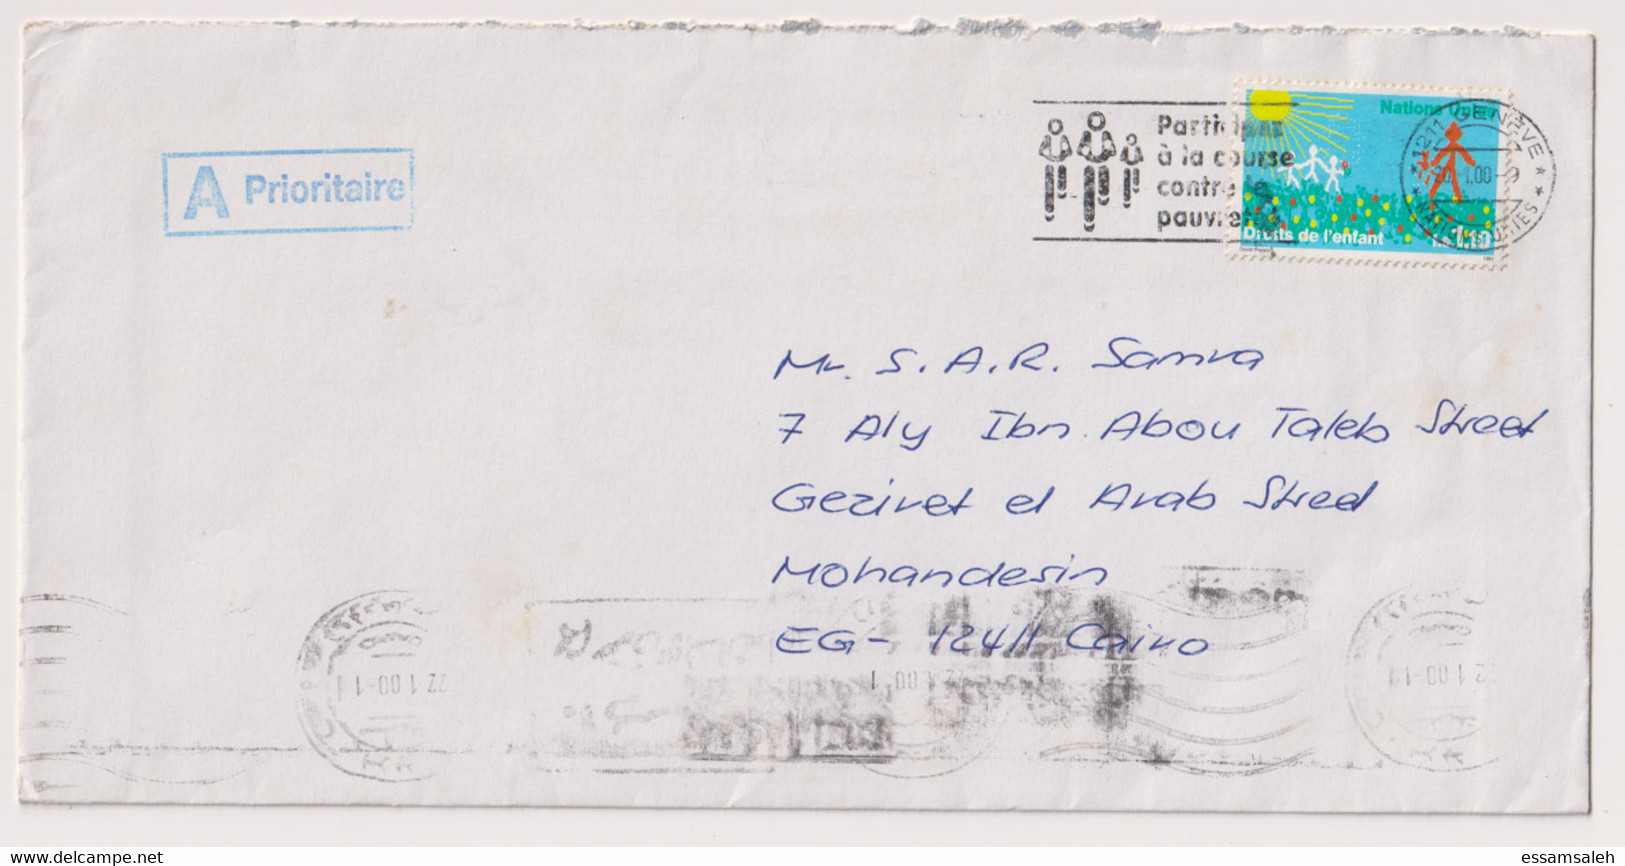 A Prioritaire
Participez
à la course
contre la
pauvreté
Nations Unies
Droits de l'enfant
1.10
1211 GENÈVE
1.00-9
Mr. S. A. R. Samra
7 Aly Ibn Abou Taleb Street
Geziret el Arab Street
Mohandesin
EG- 12411 Cairo
22 1 00-11
22 1 00 1
2 1 00-11
www.delcampe.net
essamsaleh